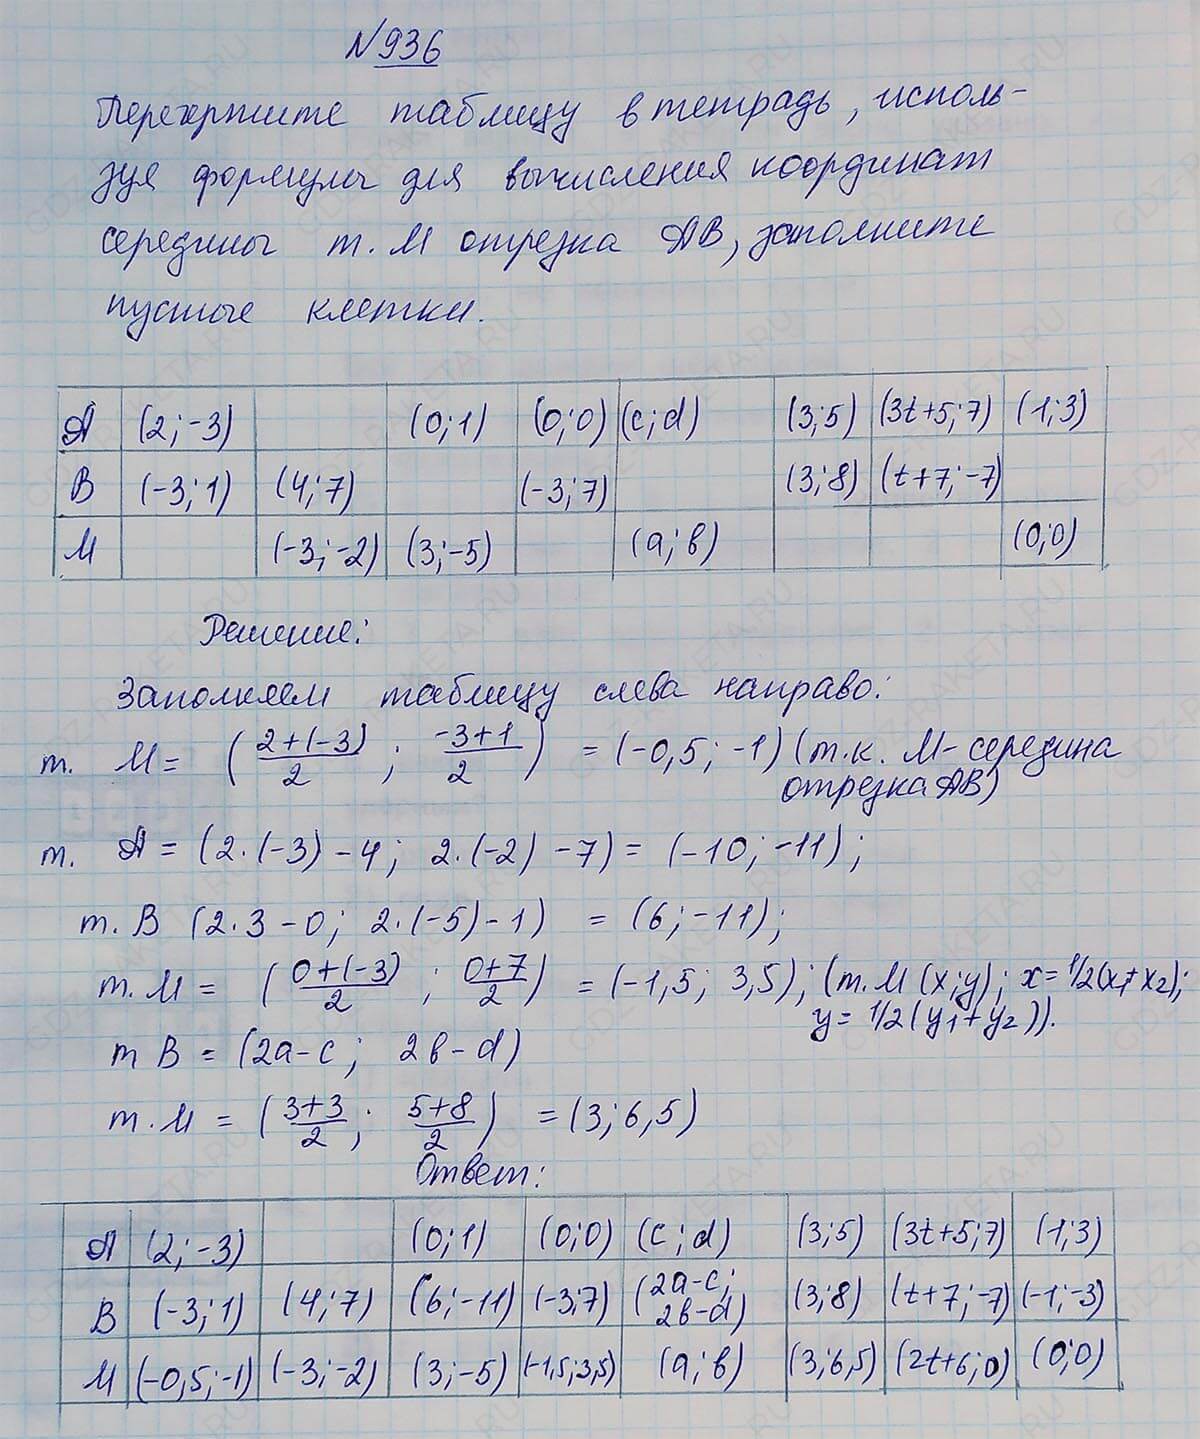 №936
Перечертите таблицу в тетрадь, исполь-
зуя формулы для вычисления координат
середины т. М отрезка АВ, заполните
пустые клетки.
А (2;-3) (0;1) (0;0) (c;d) (3;5) (3t+5;7) (1;3)
В (-3;1) (4;7) (-3;7) (3;8) (t+7;-7)
М (-3;-2) (3;-5) (a;b) (0;0)
Решение:
Заполняем таблицу слева направо:
т. М = (2+(-3)/2 ; -3+1/2) = (-0,5; -1) (т.к. М- середина
отрезка АВ)
т. А = (2·(-3) -4; 2·(-2) -7) = (-10; -11);
т. В (2·3 -0; 2·(-5) -1) = (6; -11);
т. М = (0+(-3)/2 ; 0+7/2) = (-1,5; 3,5); (т. М (x;y); x= 1/2(x1+x2);
y= 1/2(y1+y2)).
т В = (2a-c; 2b-d)
т. М = (3+3/2 ; 5+8/2) = (3; 6,5)
Ответ:
А (2;-3) (0;1) (0;0) (c;d) (3;5) (3t+5;7) (1;3)
В (-3;1) (4;7) (6;-11) (-3;7) (2a-c; 2b-d) (3;8) (t+7;-7) (-1;-3)
М (-0,5;-1) (-3;-2) (3;-5) (-1,5;3,5) (a;b) (3;6,5) (2t+6;0) (0;0)